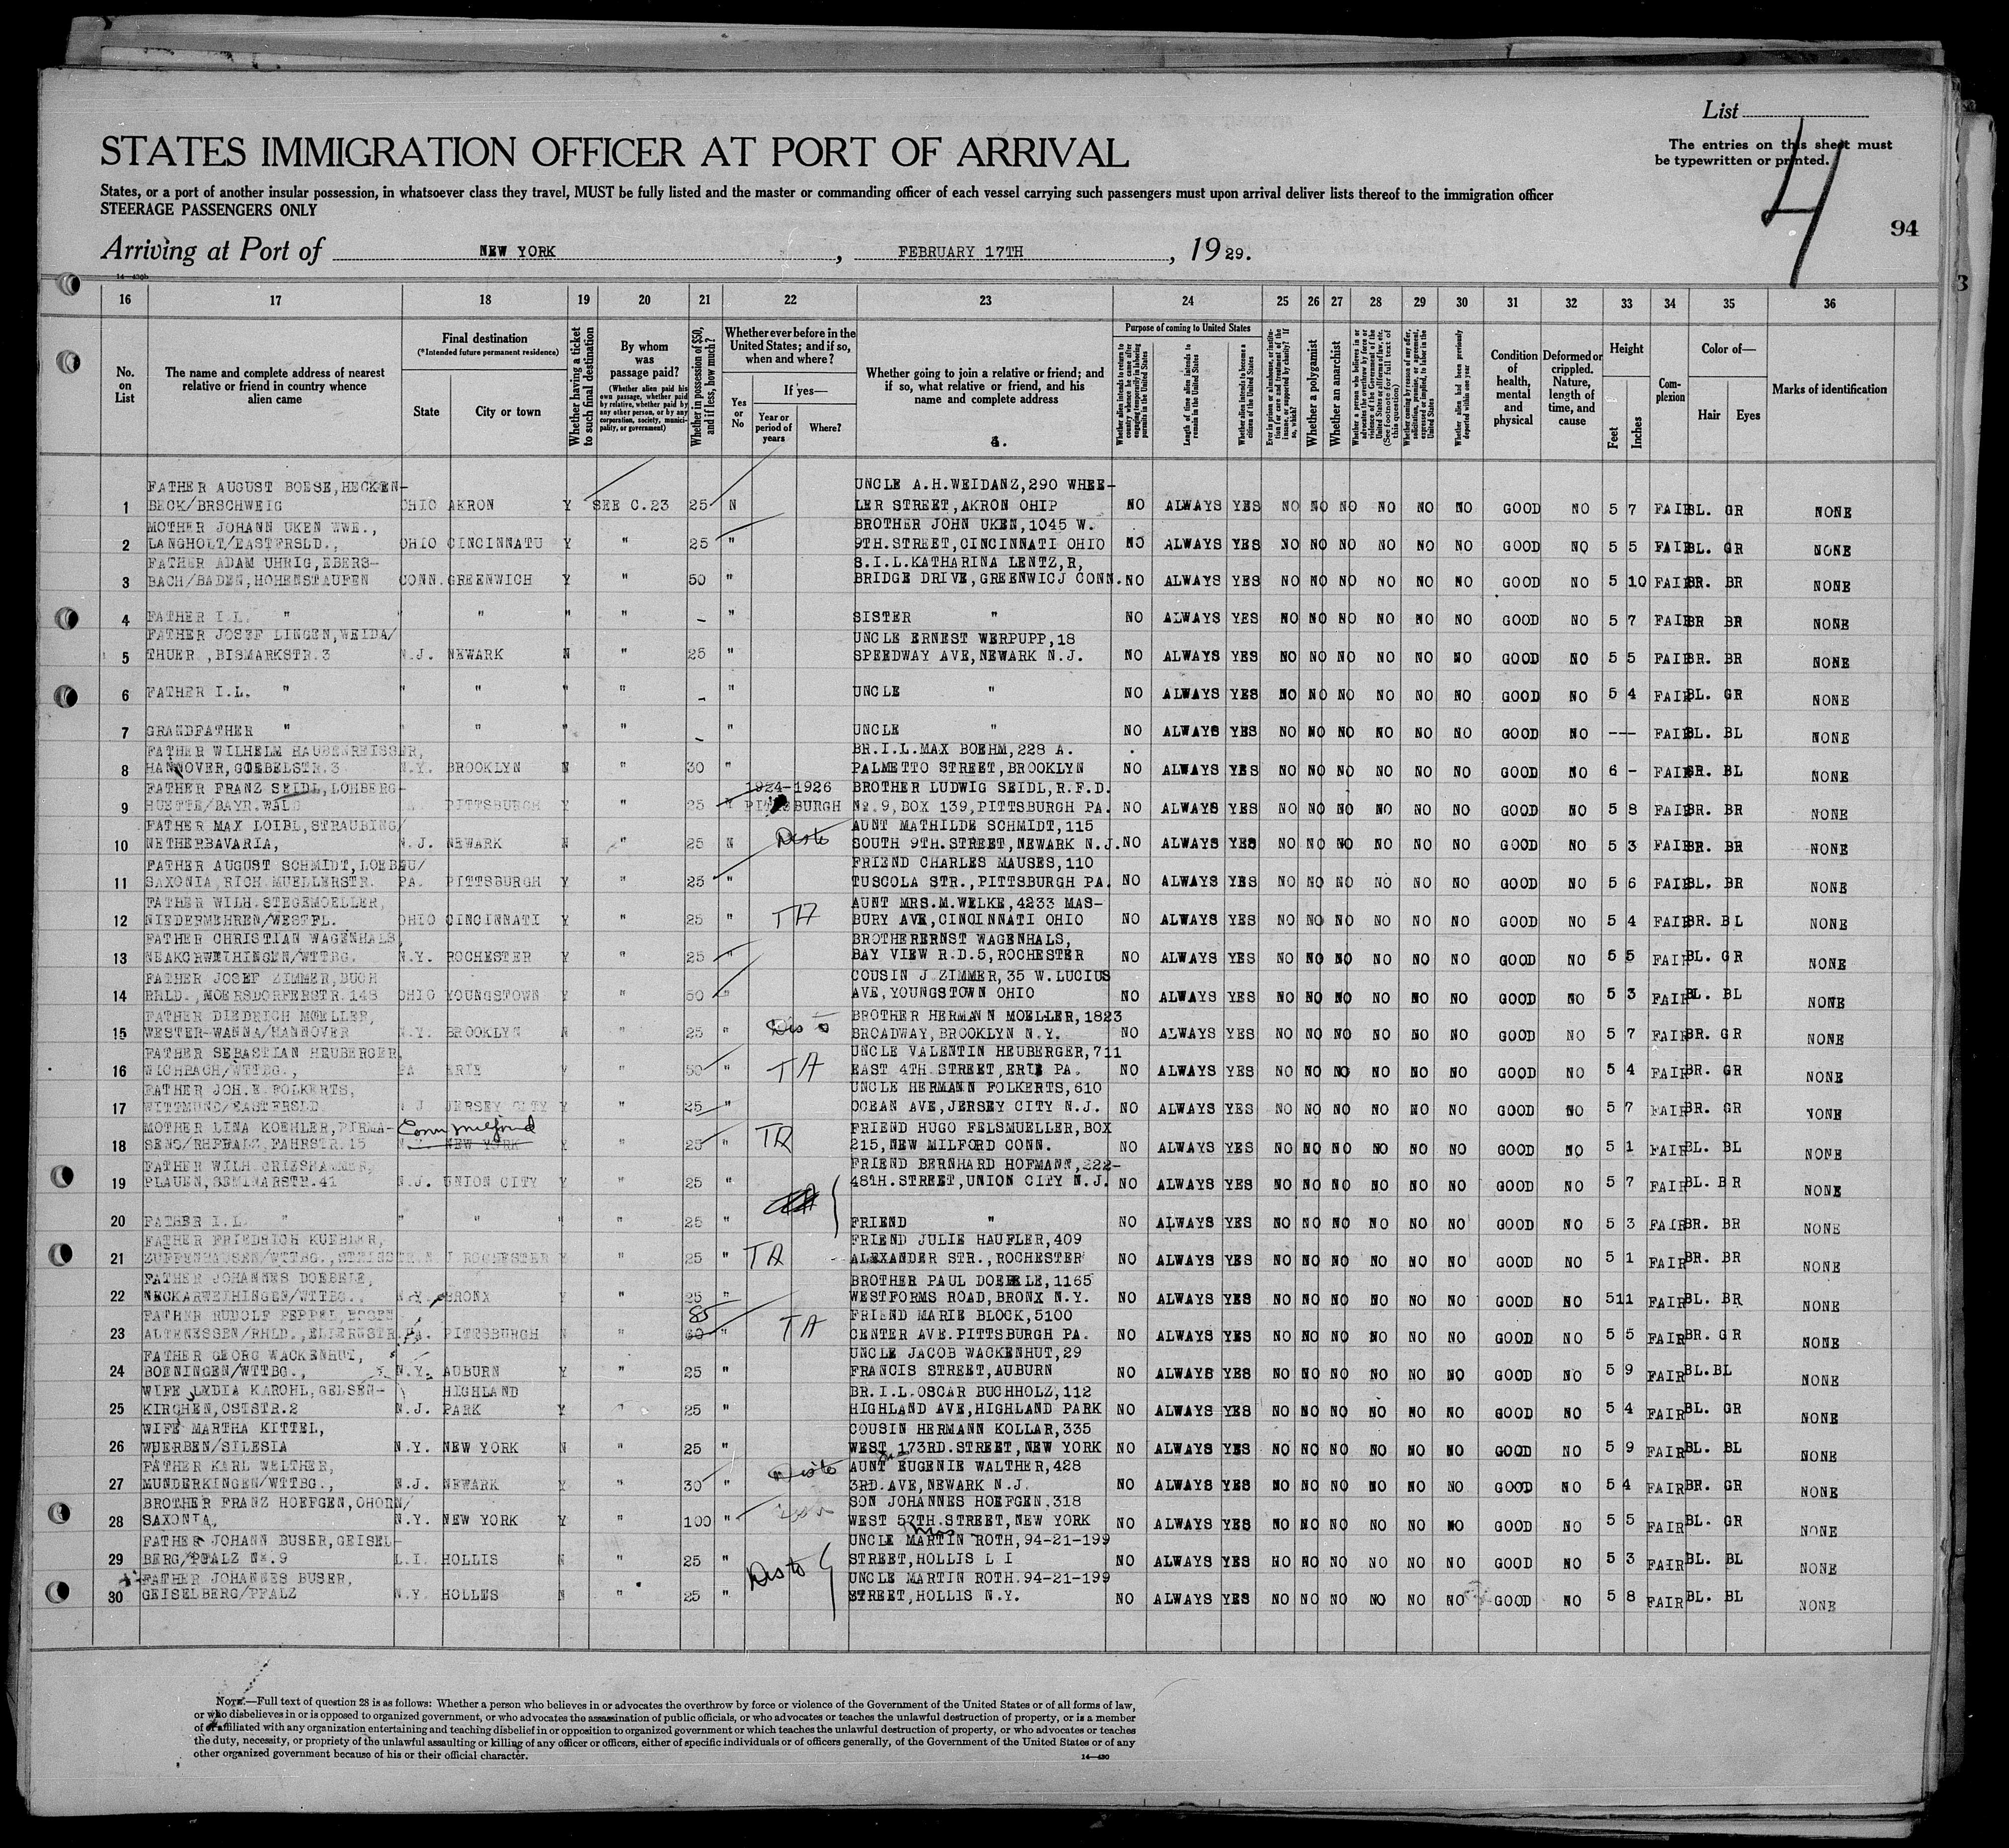 List
The entries on this sheet must
be typewritten or printed.
4
94
STATES IMMIGRATION OFFICER AT PORT OF ARRIVAL
States, or a port of another insular possession, in whatsoever class they travel, MUST be fully listed and the master or commanding officer of each vessel carrying such passengers must upon arrival deliver lists thereof to the immigration officer
STEERAGE PASSENGERS ONLY
Arriving at Port of NEW YORK, FEBRUARY 17TH, 19 29.
16 17 18 19 20 21 22 23 24 25 26 27 28 29 30 31 32 33 34 35 36
No. on List
The name and complete address of nearest relative or friend in country whence alien came
Final destination
(*Intended future permanent residence)
State
City or town
Whether having a ticket to such final destination
By whom was passage paid?
(Whether alien paid his own passage, whether paid by relative, whether paid by any other person, or by any corporation, society, municipality, or government)
Whether in possession of $50, and if less, how much?
Whether ever before in the United States; and if so, when and where?
Yes or No
If yes—
Year or period of years
Where?
Whether going to join a relative or friend; and if so, what relative or friend, and his name and complete address
Purpose of coming to United States
Whether alien intends to return to country whence he came after engaging temporarily in laboring pursuits in the United States
Length of time alien intends to remain in the United States
Whether alien intends to become a citizen of the United States
Whether a polygamist
Whether an anarchist
Condition of health, mental and physical
Deformed or crippled. Nature, length of time, and cause
Height
Feet
Inches
Complexion
Color of—
Hair
Eyes
Marks of identification
FATHER AUGUST BOESE,HECKEN- UNCLE A.H.WEIDANZ,290 WHEE-
1 BECK/BRSCHWEIG OHIO AKRON Y SEE C.23 25 N LER STREET,AKRON OHIP NO ALWAYS YES NO NO NO NO NO NO GOOD NO 5 7 FAIR BL. GR NONE
MOTHER JOHANN UKEN WWE., BROTHER JOHN UKEN,1045 W.
2 LANGHOLT/EASTFRSLD., OHIO CINCINNATU Y " 25 " 9TH.STREET,CINCINNATI OHIO NO ALWAYS YES NO NO NO NO NO NO GOOD NO 5 5 FAIR BL. GR NONE
FATHER ADAM UHRIG,EBERS- S.I.L.KATHARINA LENTZ,R,
3 BACH/BADEN,HOHENSTAUFEN CONN. GREENWICH Y " 50 " BRIDGE DRIVE,GREENWICJ CONN. NO ALWAYS YES NO NO NO NO NO NO GOOD NO 5 10 FAIR BR. BR NONE
4 FATHER I.L. " " " " " - " SISTER " NO ALWAYS YES NO NO NO NO NO NO GOOD NO 5 7 FAIR BR BR NONE
FATHER JOSEF LINGEN,WEIDA/ UNCLE ERNEST WERPUPP,18
5 THUER.,BISMARKSTR.3 N.J. NEWARK N " 25 " SPEEDWAY AVE,NEWARK N.J. NO ALWAYS YES NO NO NO NO NO NO GOOD NO 5 5 FAIR BR. BR NONE
6 FATHER I.L. " " " " " - " UNCLE " NO ALWAYS YES NO NO NO NO NO NO GOOD NO 5 4 FAIR BL. GR NONE
7 GRANDFATHER " " " " " - " UNCLE " NO ALWAYS YES NO NO NO NO NO NO GOOD NO --- FAIR BL. BL NONE
FATHER WILHELM HAUBENREISSER, BR.I.L.MAX BOEHM,228 A.
8 HANNOVER,GOEBELSTR.3 N.Y. BROOKLYN N " 30 " PALMETTO STREET,BROOKLYN NO ALWAYS YES NO NO NO NO NO NO GOOD NO 6 - FAIR GR. BL NONE
FATHER FRANZ SEIDL,LOHBERG- 1924-1926 BROTHER LUDWIG SEIDL,R.F.D.
9 HUETTE/BAYR.WALD PITTSBURGH Y " 25 Y PITTSBURGH No.9,BOX 139,PITTSBURGH PA. NO ALWAYS YES NO NO NO NO NO NO GOOD NO 5 8 FAIR BR. BR NONE
FATHER MAX LOIBL,STRAUBING/ AUNT MATHILDE SCHMIDT,115
10 NETHERBAVARIA, N.J. NEWARK N " 25 N Dis to SOUTH 9TH.STREET,NEWARK N.J. NO ALWAYS YES NO NO NO NO NO NO GOOD NO 5 3 FAIR BR. BR NONE
FATHER AUGUST SCHMIDT,LOEBAU/ FRIEND CHARLES MAUSES,110
11 SAXONIA RICH.MUELLERSTR. PA. PITTSBURGH Y " 25 " TUSCOLA STR.,PITTSBURGH PA. NO ALWAYS YES NO NO NO NO NO NO GOOD NO 5 6 FAIR BL. BR NONE
FATHER WILH.STEGEMOELLER, AUNT MRS.M.WELKE,4233 MAS-
12 NIEDERMEHREN/WESTFL. OHIO CINCINNATI Y " 25 " TA BURY AVE,CINCINNATI OHIO NO ALWAYS YES NO NO NO NO NO NO GOOD NO 5 4 FAIR BR. BL NONE
FATHER CHRISTIAN WAGENHALS, BROTHERERNST WAGENHALS,
13 NEAKCRWEIHINGEN/WTTBG. N.Y. ROCHESTER Y " 25 " BAY VIEW R.D.5,ROCHESTER NO ALWAYS YES NO NO NO NO NO NO GOOD NO 5 5 FAIR BL. GR NONE
FATHER JOSEF ZIMMER,BUCH COUSIN J ZIMMER,35 W.LUCIUS
14 RHLD.,MOERSDORFERSTR.148 OHIO YOUNGSTOWN Y " 50 " AVE,YOUNGSTOWN OHIO NO ALWAYS YES NO NO NO NO NO NO GOOD NO 5 3 FAIR BL. BL NONE
FATHER DIEDRICH MOELLER, BROTHER HERMANN MOELLER,1823
15 WESTER-WANNA/HANNOVER N.Y. BROOKLYN N " 25 " Dis to BROADWAY,BROOKLYN N.Y. NO ALWAYS YES NO NO NO NO NO NO GOOD NO 5 7 FAIR BR. GR NONE
FATHER SEBASTIAN HEUBERGER, UNCLE VALENTIN HEUBERGER,711
16 WICHBACH/WTTBG., PA ERIE Y " 50 " TA EAST 4TH.STREET,ERIE PA. NO ALWAYS YES NO NO NO NO NO NO GOOD NO 5 4 FAIR BR. GR NONE
FATHER JOH.E.FOLKERTS, UNCLE HERMANN FOLKERTS,610
17 WITTMUND/EASTFRSLD. N J JERSEY CITY Y " 25 " OCEAN AVE,JERSEY CITY N.J. NO ALWAYS YES NO NO NO NO NO NO GOOD NO 5 7 FAIR BR. GR NONE
MOTHER LINA KOEHLER,PIRMA- Conn Milford FRIEND HUGO FELSMUELLER,BOX
18 SENS/RHPFALZ,FAHRSTR.15 N.Y. NEW YORK Y " 25 " TA 215,NEW MILFORD CONN. NO ALWAYS YES NO NO NO NO NO NO GOOD NO 5 1 FAIR BL. BL NONE
FATHER WILH.GRIESHAMMER, FRIEND BERNHARD HOFMANN,222-
19 PLAUEN,SEMINARSTR.41 N.J. UNION CITY Y " 25 " 48TH.STREET,UNION CITY N.J. NO ALWAYS YES NO NO NO NO NO NO GOOD NO 5 7 FAIR BL. BR NONE
20 FATHER I.L. " " " " " 25 " FRIEND " NO ALWAYS YES NO NO NO NO NO NO GOOD NO 5 3 FAIR BR. BR NONE
FATHER FRIEDRICH KUEBLER, FRIEND JULIE HAUFLER,409
21 ZUFFENHAUSEN/WTTBG. ROCHESTER " 25 " TA ALEXANDER STR.,ROCHESTER NO ALWAYS YES NO NO NO NO NO NO GOOD NO 5 1 FAIR BR. BR NONE
FATHER JOHANNES DOEBELE, BROTHER PAUL DOEBELE,1165
22 NECKARWEIHINGEN/WTTBG., N.Y. BRONX Y " 25 " WESTFORMS ROAD,BRONX N.Y. NO ALWAYS YES NO NO NO NO NO NO GOOD NO 511 FAIR BL. BR NONE
FATHER RUDOLF PEPPEL,ESSEN 85 FRIEND MARIE BLOCK,5100
23 ALTENESSEN/RHLD. PA. PITTSBURGH N " 60 " TA CENTER AVE.PITTSBURGH PA. NO ALWAYS YES NO NO NO NO NO NO GOOD NO 5 5 FAIR BR. GR NONE
FATHER GEORG WACKENHUT, UNCLE JACOB WACKENHUT,29
24 BOENINGEN/WTTBG., N.Y. AUBURN Y " 25 " FRANCIS STREET,AUBURN NO ALWAYS YES NO NO NO NO NO NO GOOD NO 5 9 FAIR BL.BL NONE
WIFE LYDIA KAROHL,GELSEN- HIGHLAND BR.I.L.OSCAR BUCHHOLZ,112
25 KIRCHEN,OSTSTR.2 N.J. PARK Y " 25 " HIGHLAND AVE,HIGHLAND PARK NO ALWAYS YES NO NO NO NO NO NO GOOD NO 5 4 FAIR BL. GR NONE
WIFE MARTHA KITTEL, COUSIN HERMANN KOLLAR,335
26 WUERBEN/SILESIA N.Y. NEW YORK N " 25 " WEST 173RD.STREET,NEW YORK NO ALWAYS YES NO NO NO NO NO NO GOOD NO 5 9 FAIR BL. BL NONE
FATHER KARL WELTHER, AUNT EUGENIE WALTHER,428
27 MUNDERKINGEN/WTTBG., N.J. NEWARK Y " 30 " Dis to 3RD.AVE,NEWARK N.J. NO ALWAYS YES NO NO NO NO NO NO GOOD NO 5 4 FAIR BR. GR NONE
BROTHER FRANZ HOEFGEN,OHORN/ SON JOHANNES HOEFGEN,318
28 SAXONIA, N.Y. NEW YORK Y " 100 " WEST 57TH.STREET,NEW YORK NO ALWAYS YES NO NO NO NO NO NO GOOD NO 5 5 FAIR BL. GR NONE
FATHER JOHANN BUSER,GEISEL- UNCLE MARTIN ROTH,94-21-199
29 BERG/PFALZ No.9 L.I. HOLLIS N " 25 " Dis to STREET,HOLLIS L I NO ALWAYS YES NO NO NO NO NO NO GOOD NO 5 3 FAIR BL. BL NONE
FATHER JOHANNES BUSER, UNCLE MARTIN ROTH.94-21-199
30 GEISELBERG/PFALZ N.Y. HOLLES N " 25 " STREET,HOLLIS N.Y. NO ALWAYS YES NO NO NO NO NO NO GOOD NO 5 8 FAIR BL. BL NONE
NOTE.—Full text of question 28 is as follows: Whether a person who believes in or advocates the overthrow by force or violence of the Government of the United States or of all forms of law,
or who disbelieves in or is opposed to organized government, or who advocates the assassination of public officials, or who advocates or teaches the unlawful destruction of property, or is a member
of or affiliated with any organization entertaining and teaching disbelief in or opposition to organized government or which teaches the unlawful destruction of property, or who advocates or teaches
the duty, necessity, or propriety of the unlawful assaulting or killing of any officer or officers, either of specific individuals or of officers generally, of the Government of the United States or of any
other organized government because of his or their official character.
14—430